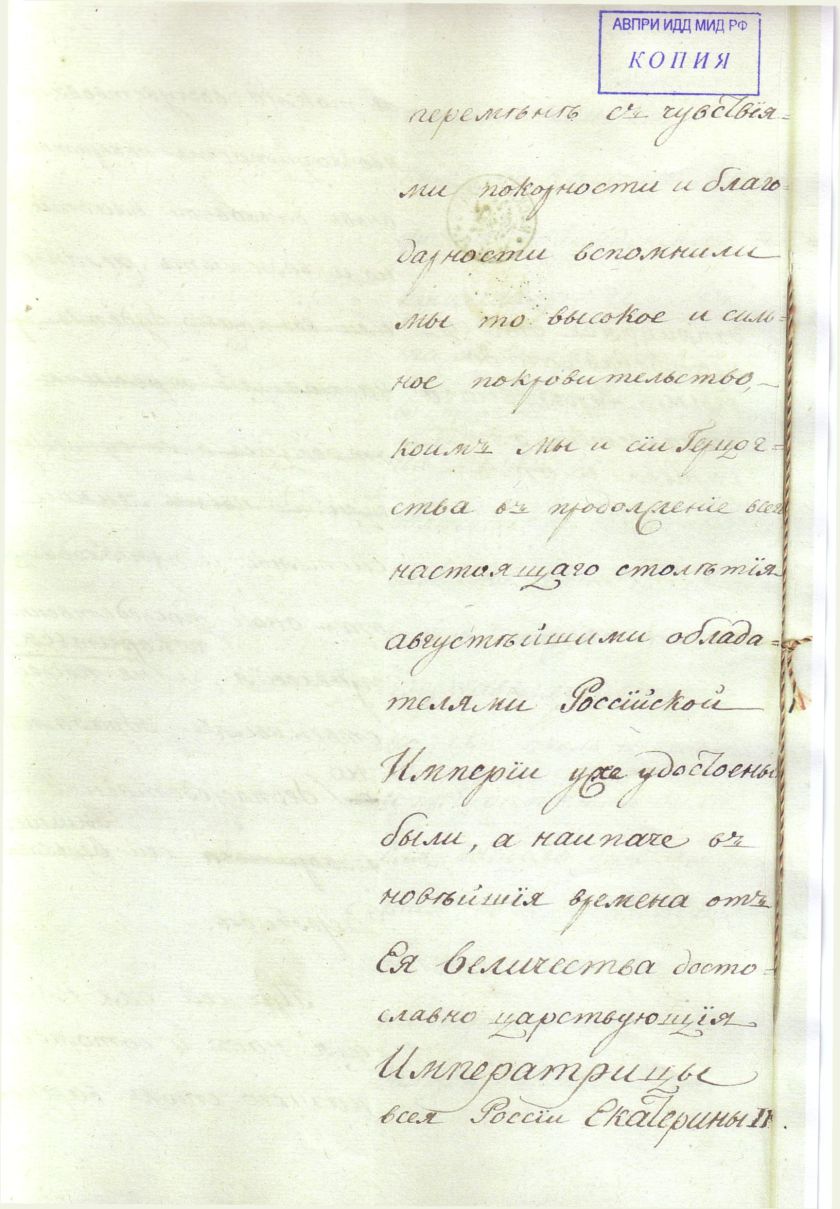 АВПРИ ИДД МИД РФ
КОПИЯ
перемѣнѣ съ чувствія=
ми покорности и благо=
дарности вспомнили
мы то высокое и силь=
ное покровительство,
коимъ мы и сіи Герцог=
ства въ продолженіе всего
настоящаго столѣтія
августѣйшими облада=
телями Россійской
Имперіи уже удостоены
были, а наипаче въ
новѣйшія времена отъ
Ея Величества досто=
славно царствующія
Императрицы
всея Россіи Екатерины II.